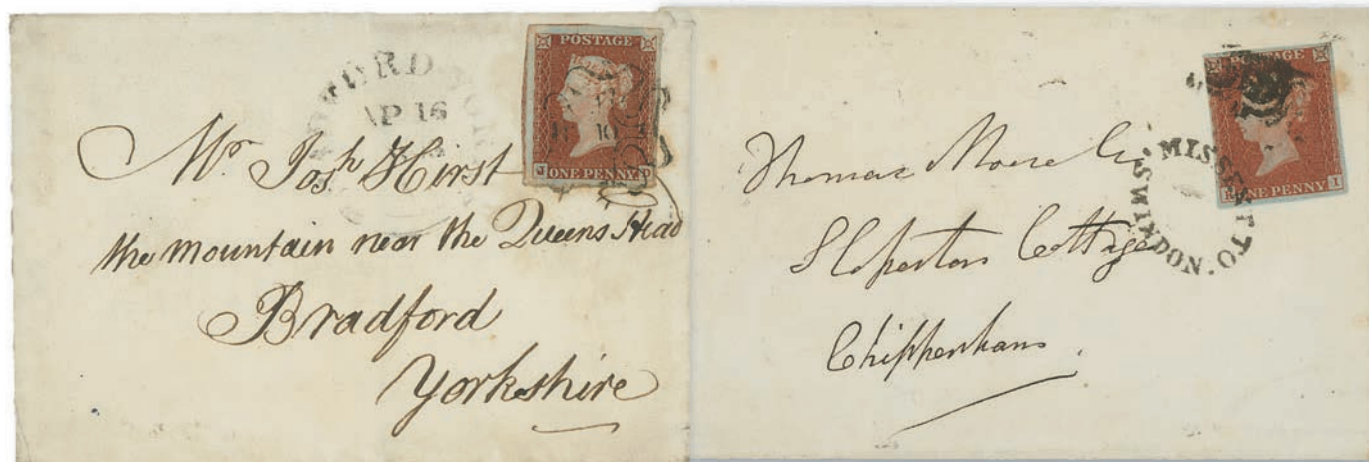 AP 16
POSTAGE
10
J ONE PENNY D
Mr. Josh Hirst
the mountain near the Queen's Head
Bradford
Yorkshire
POSTAGE
R ONE PENNY I
MISSENT TO
SWINDON.
Thomas Moore Esq
Sloperton Cottage
Chippenham